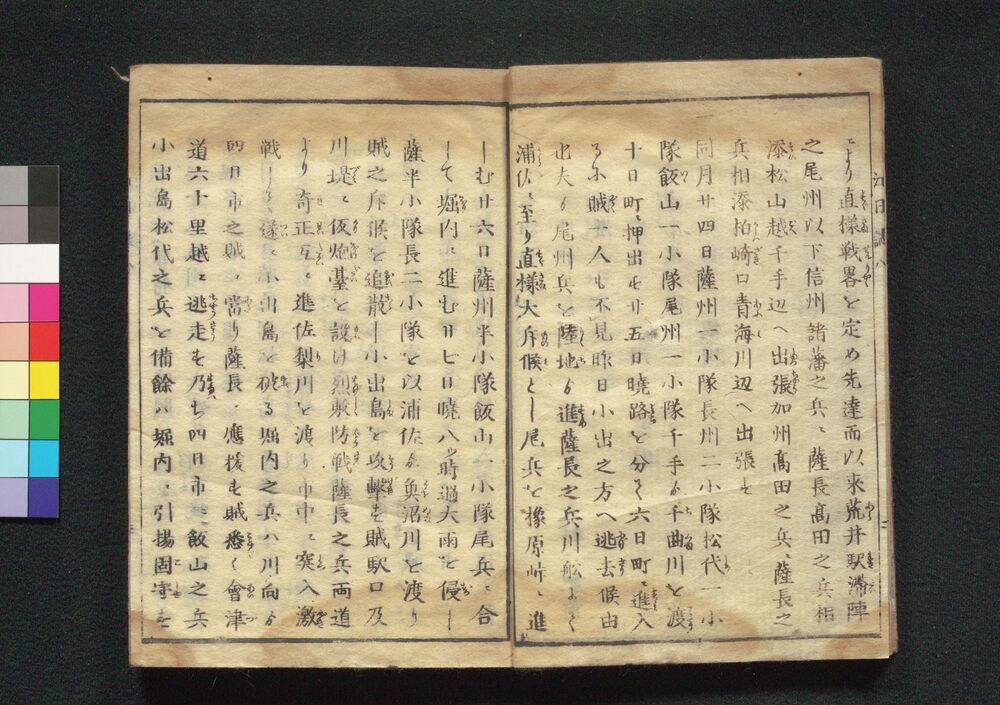 より直様戦畧を定め先達而以来荒井駅滞陣
之尾州以下信州諸藩之兵ニ薩長高田之兵相
添松山越千手辺へ出張加州高田之兵ニ薩長之
兵相添柏崎口青海川辺へ出張す
同月廿四日薩州一小隊長州二小隊松代一小
隊飯山一小隊尾州一小隊千手ゟ千曲川を渡
十日町ニ押出す廿五日暁路を分て六日町ニ進入
るに賊一人も不見昨日小出之方へ逃去候由
也夫ゟ尾州兵を陸地ゟ進薩長之兵川船にて
浦佐ニ至り直様大斥候として尾兵を橡原峠ニ進
しむ廿六日薩州半小隊飯山一小隊尾兵ニ合
して堀内ニ進む廿七日暁八ツ時過大雨を侵し
薩半小隊長二小隊を以浦佐ゟ魚沼川を渡り
賊之斥候を追散し小出島を攻撃す賊駅口及
川堤ニ仮炮䑓を設け烈敷防戦薩長之兵両道
より奇正互ニ進佐梨川を渡り市中ニ突入激
戦して遂に小出島を破る堀内之兵ハ川向ゟ
四日市之賊ニ當り薩長ニ應援す賊悉く會津
道六十里越ニ逃走す乃ち四日市ニ飯山之兵
小出島松代之兵を備餘ハ堀内ニ引揚固守す